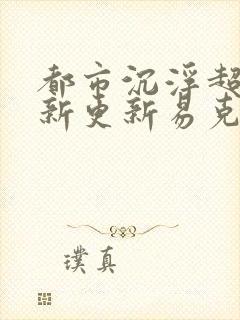 都市沉浮超
新更新易克
璞真